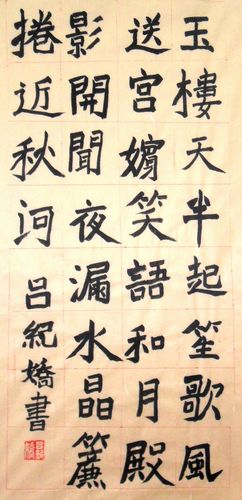 玉樓天半起笙歌風
送宮嬪笑語和月殿
影開聞夜漏水晶簾
捲近秋河
呂紀嬌書